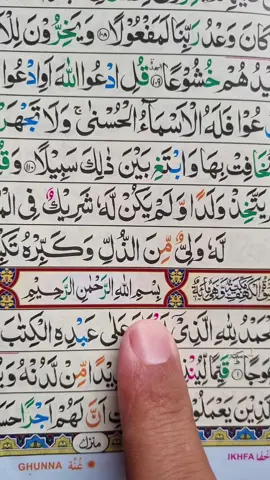 كَانَ وَعْدُ رَبِّنَا لَمَفْعُولًا ﴿١٠٨﴾ وَيَخِرُّونَ لِلْاَ
يدُهُمْ خُشُوعًا ﴿١٠٩﴾ قُلِ ادْعُوا اللّٰهَ اَوِادْعُوا
عُوْا فَلَهُ الْاَسْمَآءُ الْحُسْنٰى ۚ وَلَا تَجْهَرْ
تُخَافِتْ بِهَا وَابْتَغِ بَيْنَ ذٰلِكَ سَبِيلًا ﴿١١٠﴾ وَقُ
يَتَّخِذْ وَلَدًا وَّلَمْ يَكُنْ لَّهٗ شَرِيكٌ فِى الْمُ
لَّهٗ وَلِىٌّ مِّنَ الذُّلِّ وَكَبِّرْهُ تَكْبِ
بِسْمِ اللّٰهِ الرَّحْمٰنِ الرَّحِيْمِ
حَمْدُ لِلّٰهِ الَّذِىْ عَلٰى عَبْدِهِ الْكِتٰبَ
قَيِّمًا لِّيُنْ يدًا مِّنْ لَّدُنْهُ وَ
الَّذِينَ يَعْمَلُو اَنَّ لَهُمْ اَجْرًا حَسَ
منزل
GHUNNA غُنَّه IKHFA اِخْفَا